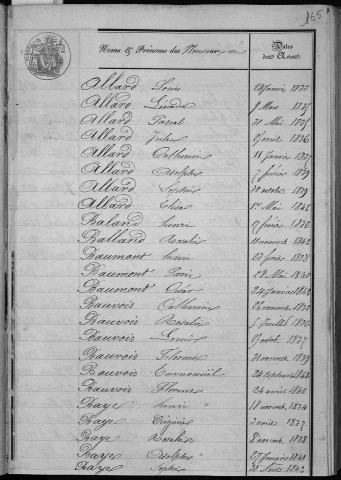 165
Noms & Prénoms des Nouveau-nés
Dates des Actes
Allard Louis 1822
Allard 9 Mars 1825
Allard Pascal 31 Mai 1825
Allard Jules avril 1826
Allard Catherine 11 Janvier 1827
Allard Adolphe 7 février 1829
Allard Sophie octobre 1829
Allard Elisa 1er Mai 1842
Baland henri 17 février 1826
Balland Rosalie 11 novembre 1842
Baumont henri 1828
Baumont 29 Mai 1840
Baumont 24 Janvier 1842
Bauvois Catherine 1822
Bauvois Rosalie 5 Juillet 1826
Bauvois Louis 1827
Bauvois novembre 1829
Bauvois 24 Septembre 1842
Bauvois Florence 24 avril 1840
Baye henri 18 novemb. 1824
Baye Virginie 2 avril 1827
Baye Rosalie 8 novemb. 1828
Baye Adolphe 27 Janvier 1841
Baye Sophie 30 Août 1842